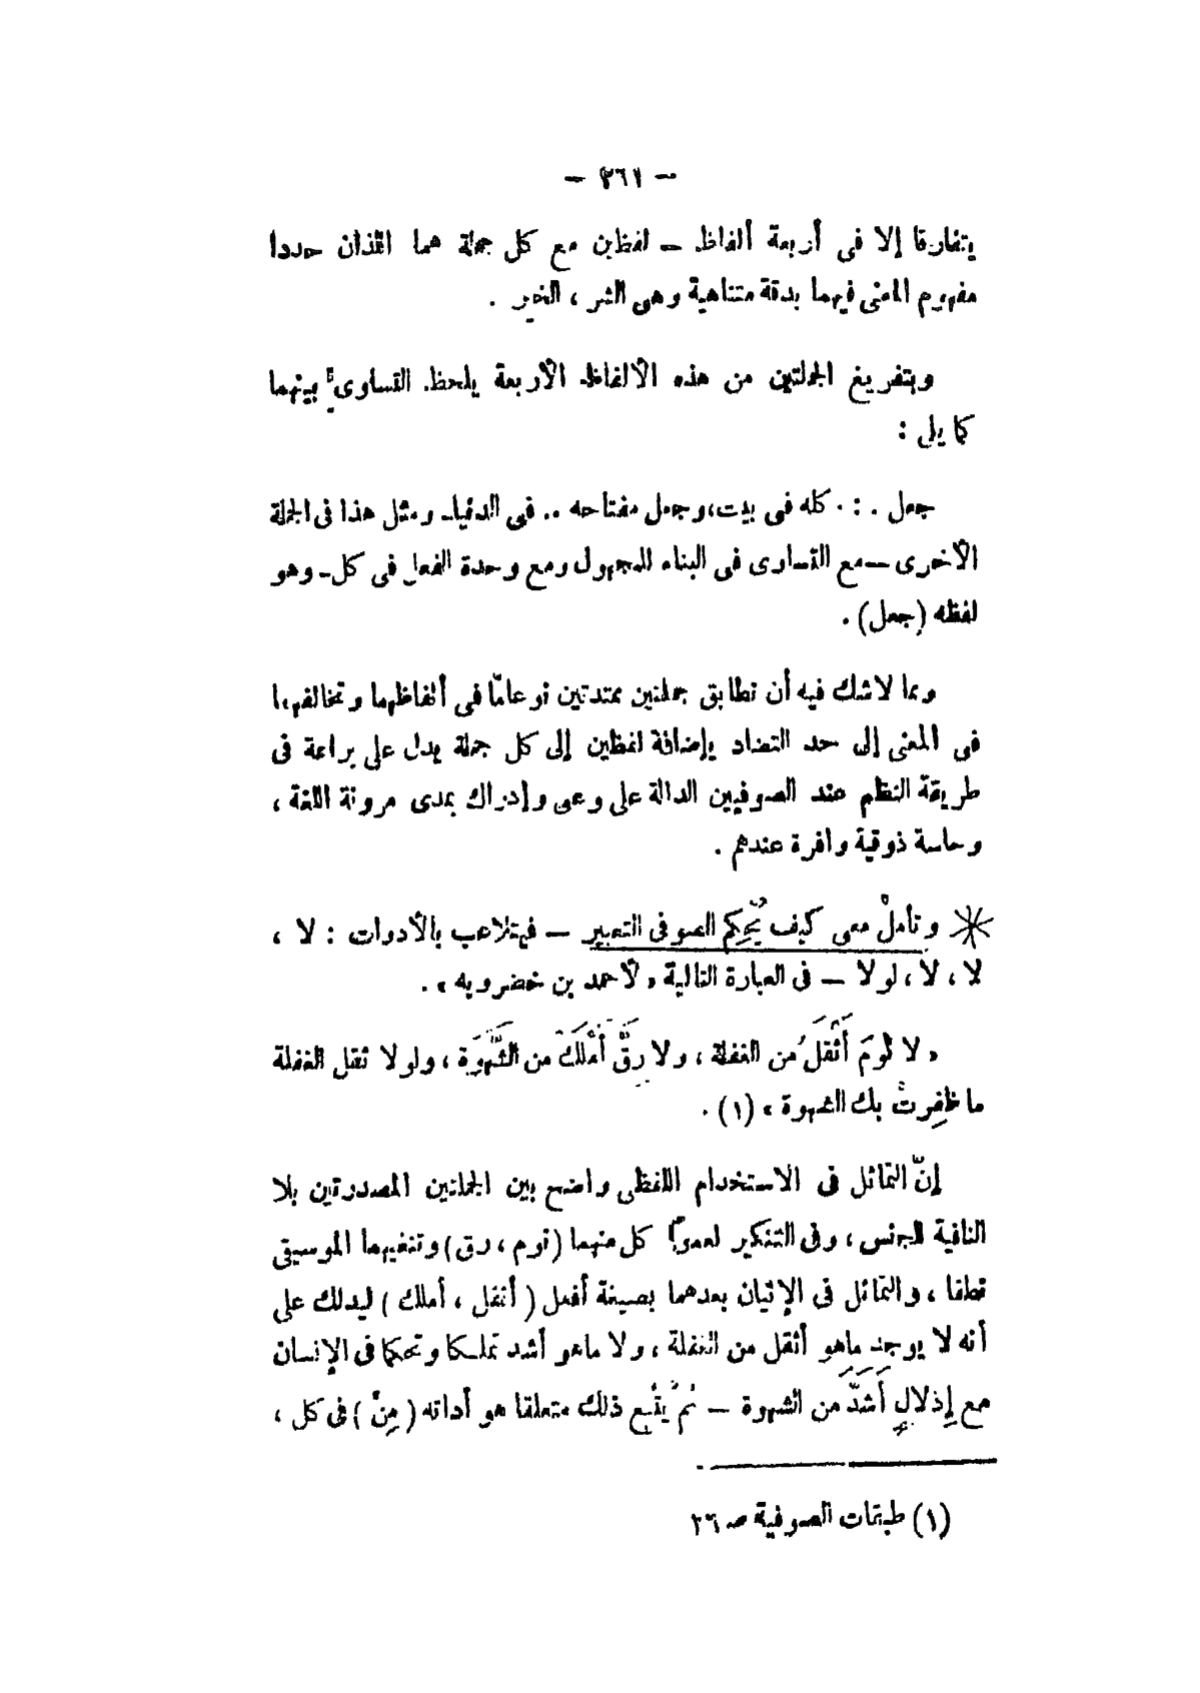 — ٣٦١ —
يتفارقا إلا فى أربعة ألفاظ — لفظين مع كل جملة هما اللذان حددا
مفهوم المعنى فيهما بدقة متناهية وهى الشر ، الخير .
وبتفريغ الجملتين من هذه الألفاظ الأربعة يلحظ التساوى بينهما
كما يلى :
جعل . : . كله فى بيت، وجعل مفتاحه .. فى الدنيا ـ ومثل هذا فى الجملة
الأخرى — مع التساوى فى البناء للمجهول ومع وحدة الفعل فى كل ـ وهو
لفظه (جعل) .
ومما لاشك فيه أن تطابق جملتين ممتدتين نوعامّا فى ألفاظهما وتخالفهما
فى المعنى إلى حد التضاد بإضافة لفظين إلى كل جملة يدل على براعة فى
طريقة النظم عند الصوفيين الدالة على وعى وإدراك بمدى مرونة اللغة ،
وحاسة ذوقية وافرة عندهم .
وتأملْ معى كيف يُحْكِم الصوفى التعبير — فيتلاعب بالأدوات : لا ،
لا ، لا ، لولا — فى العبارة التالية « لأحمد بن خضرويه » .
« لا نومَ أثقلَ من الغفلة ، ولا رِقَّ أملكَ من الشَّهْوَة ، ولولا ثقل الغفلة
ما ظفِرتْ بك الشهوة » (١) .
إنّ التماثل فى الاستخدام اللفظى واضح بين الجملتين المصدرتين بلا
النافية للجنس ، وفى التنكير لعموم كل منهما (نوم ، رق) وتنغيمها الموسيقى
نطقا ، والتماثل فى الإتيان بعدهما بصيغة أفعل ( أثقل ، أملك ) ليدلك على
أنه لا يوجد ماهو أثقل من الغفلة ، ولا ماهو أشد تملكا وتحكما فى الإنسان
مع إذلالٍ أَشَدَّ من الشهوة — ثم يُتْبع ذلك متعلقا هو أداته ( مِنْ ) فى كل ،
(١) طبقات الصوفية صـ ٢٦